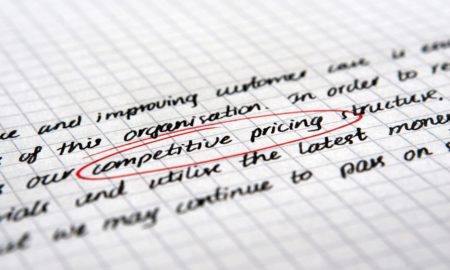 and improving customer case is
of this organisation. In order to
our competitive pricing structure.
and utilise the latest
we may continue to pass on